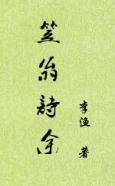 笠翁詩余
李漁 著